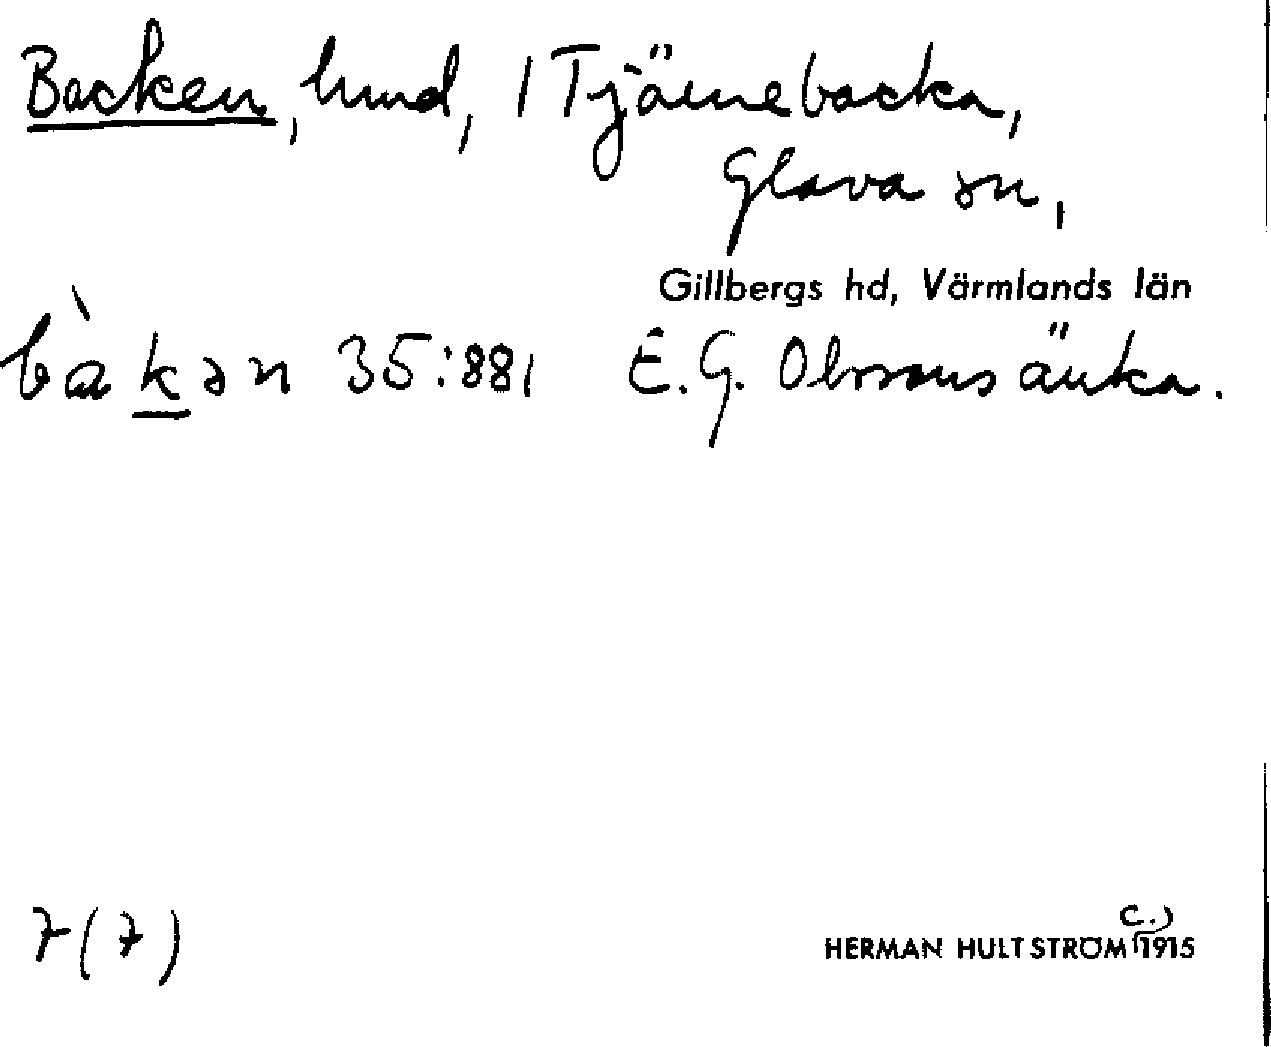 Backen, hund, i Tjärnebacka,
Glava sn,
Gillbergs hd, Värmlands län
bàkən 35:881 E.G. Olssons änka.
7(7)
HERMAN HULTSTRÖM (C.) 1915